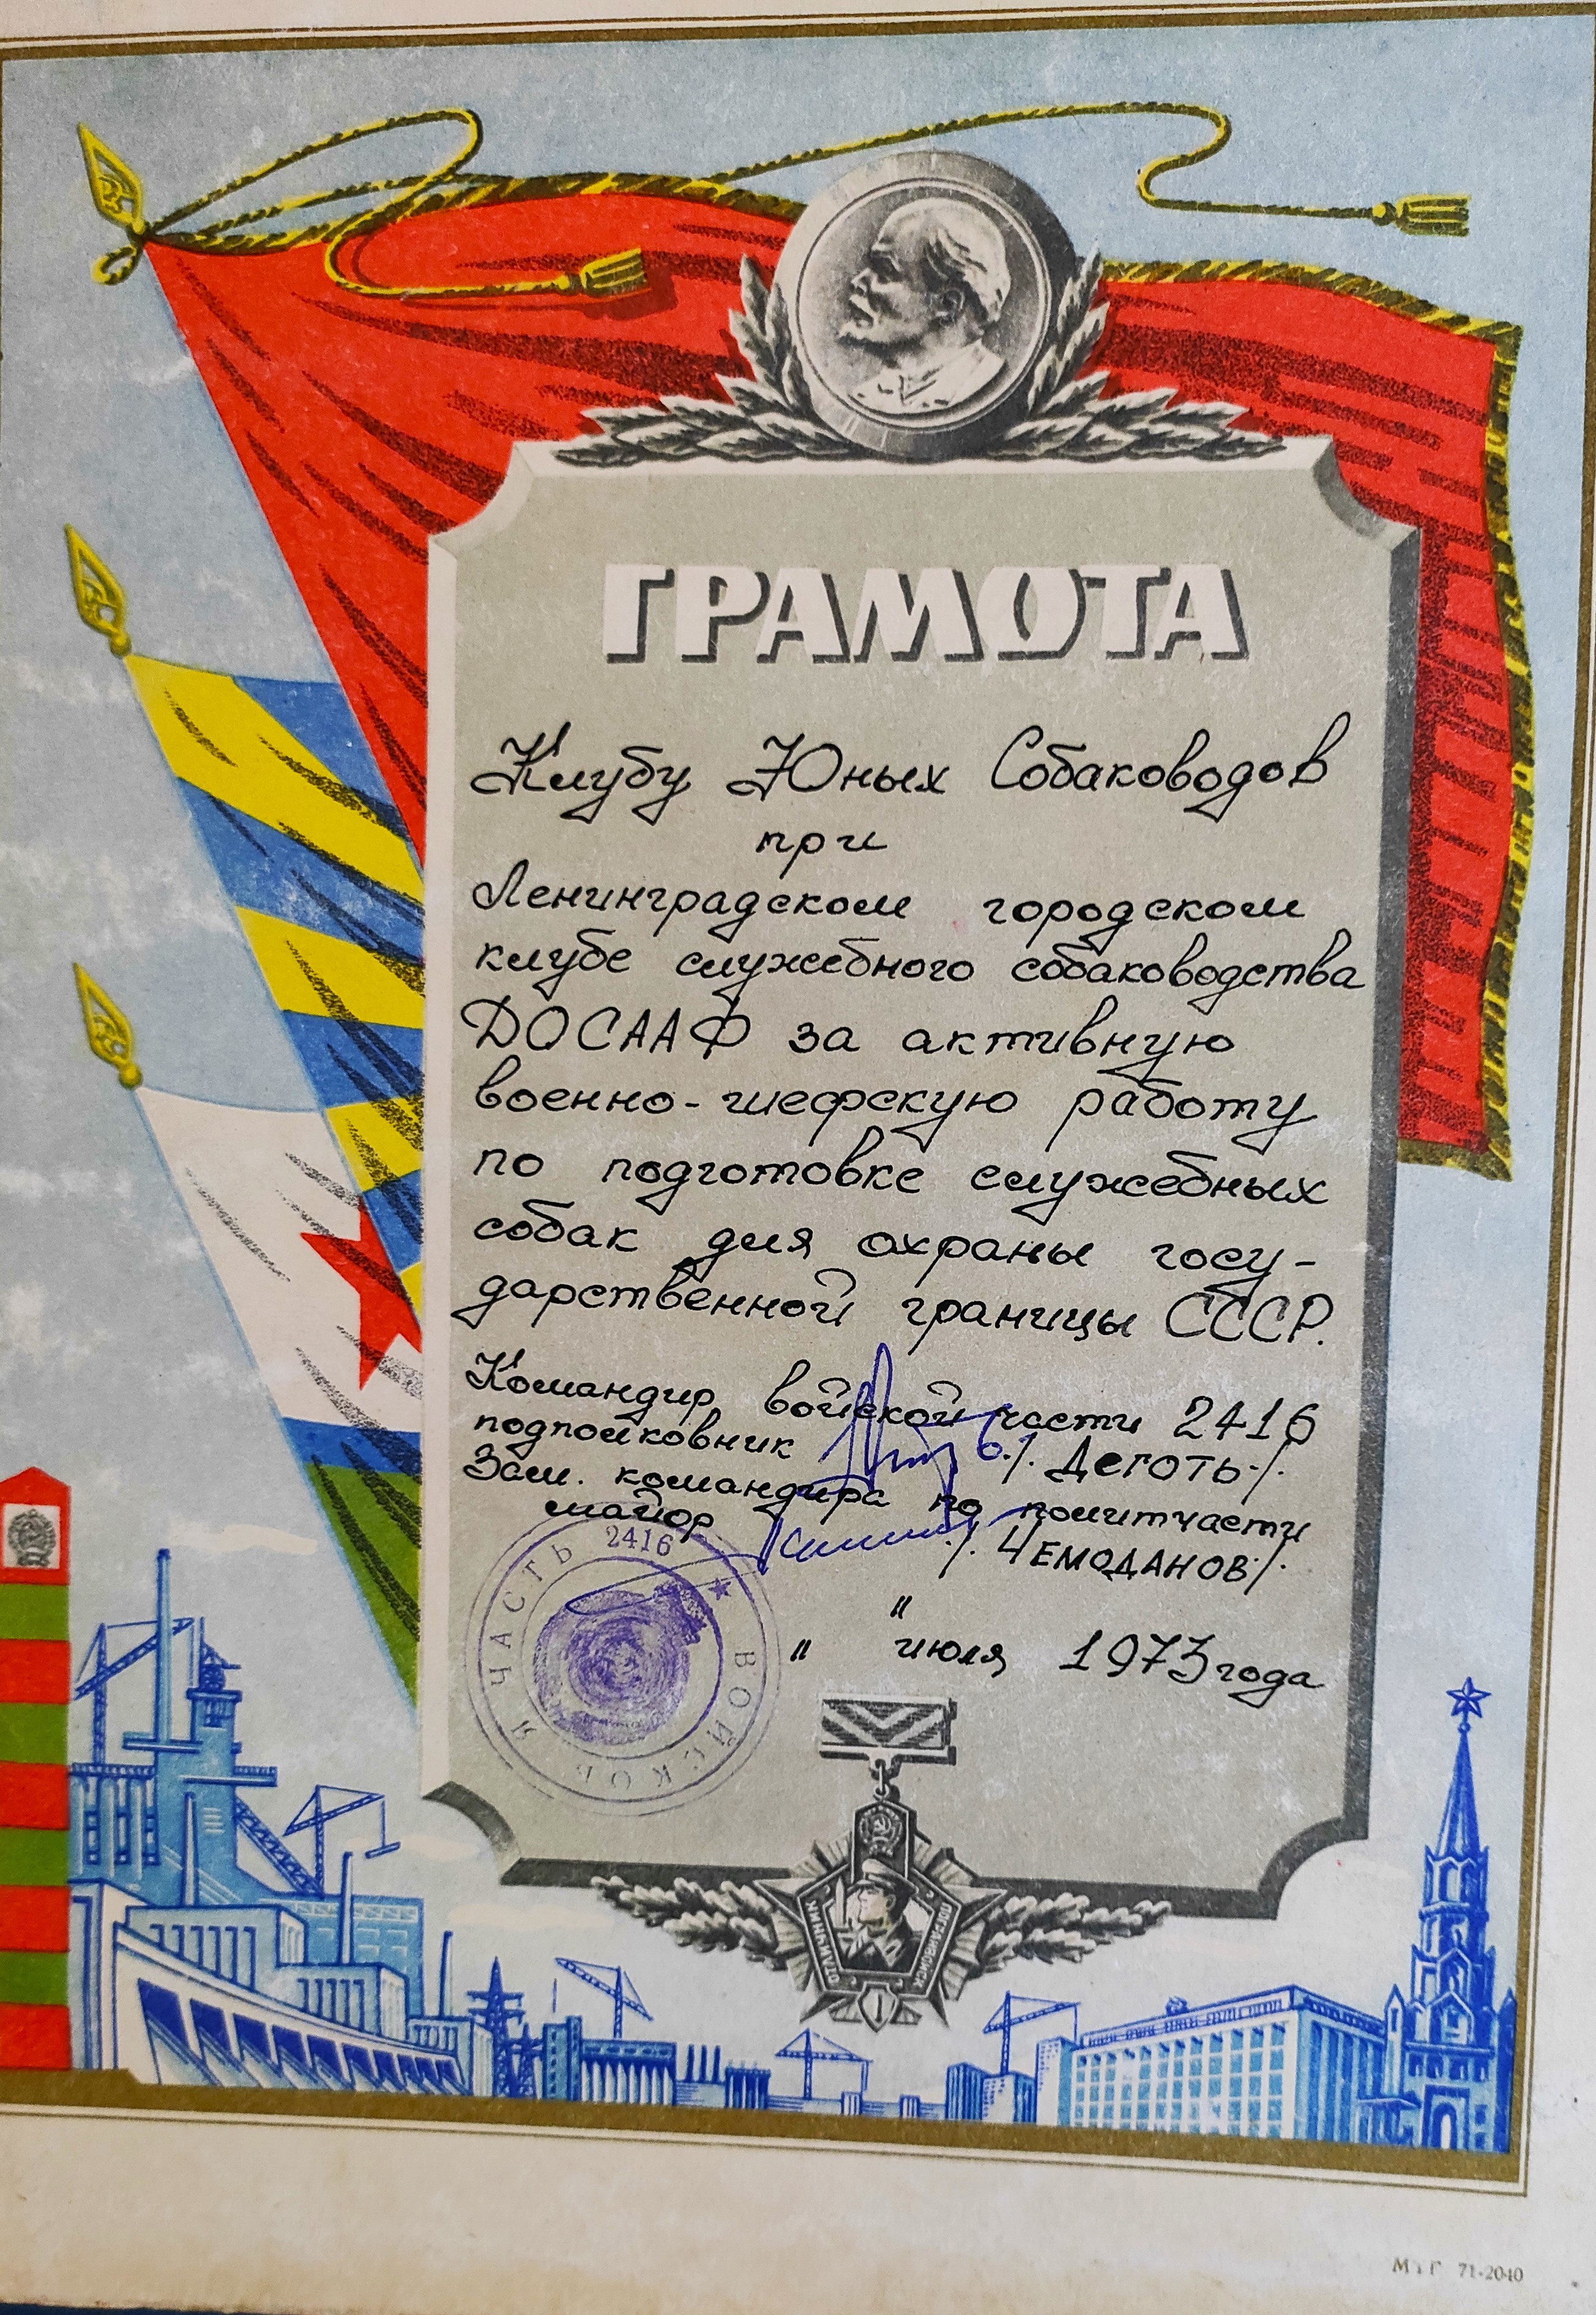 ГРАМОТА
Клубу Юных Собаководов
при
Ленинградском городском
клубе служебного собаководства
ДОСААФ за активную
военно-шефскую работу
по подготовке служебных
собак для охраны госу-
дарственной границы СССР.
Командир войской части 2416
подполковник /. Деготь./.
Зам. командира по политчасти
майор /. ЧЕМОДАНОВ./.
"
" июля 1973 года
ВОЙСКОВАЯ ЧАСТЬ 2416
ОТЛИЧНИК ПОГРАНВОЙСК
I
МТГ 71-2040